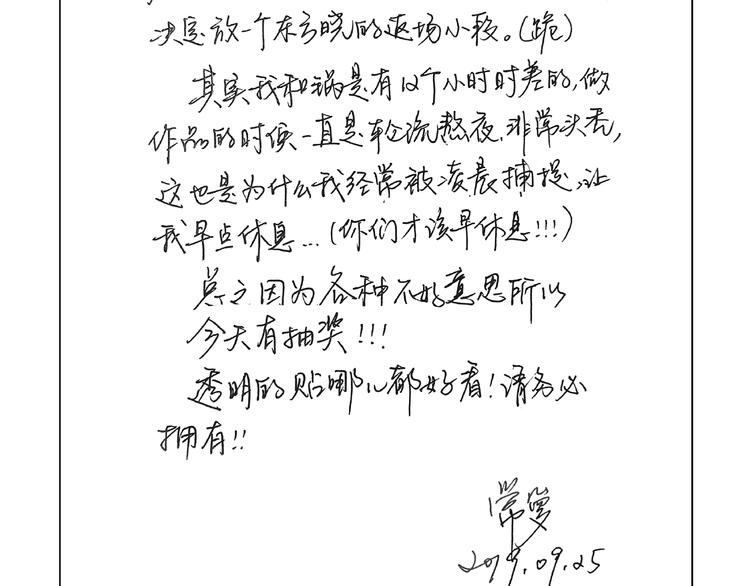 决定放一个东方晓的返场小段。(跪)
其实我和祸是有12个小时时差的,做
作品的时候一直是轮流熬夜,非常头秃,
这也是为什么我经常被凌晨捕捉,让
我早点休息...(你们才该早休息!!!)
总之因为各种不好意思所以
今天有抽奖!!!
透明的贴哪儿都好看!请务必
拥有!!
常爹
2019.09.25